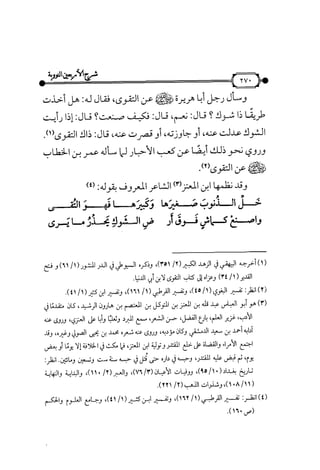 شرح الأربعين النووية
٢٧٠
وسأل رجل أبا هريرة رضي الله عنه عن التقوى، فقال له: هل أخذت
طريقًا ذا شوك؟ قال: نعم، قال: فكيف صنعت؟ قال: إذا رأيت
الشوك عدلت عنه، أو جاوزته، أو قصرت عنه، قال: ذاك التقوى(١).
وروي نحو ذلك أيضًا عن كعب الأحبار لما سأله عمر بن الخطاب
رضي الله عنه عن التقوى(٢).
وقد نظمها ابن المعتز(٣) الشاعر المعروف بقوله:(٤)
خـل الـذنوب صـغيرها وكبيرهـا فهـو التقـى
واصـنع كـماش فـوق أر ض الـشوك يحـذر مـا يـرى
(١) أخرجه البيهقي في الزهد الكبير (٢/ ٣٥١)، وذكره السيوطي في الدر المنثور (١/ ٦١) و فتح
القدير (١/ ٣٤) وعزاه إلى كتاب التقوى لابن أبي الدنيا.
(٢) انظر: تفسير البغوي (١/ ٤٥)، وتفسير القرطبي (١/ ١٦٢)، وتفسير ابن كثير (١/ ٤١).
(٣) هو أبو العباس عبد الله بن المعتز بن المتوكل بن المعتصم بن هارون الرشيد، كان متقدمًا في
الأدب، غزير العلم، بارع الفضل، حسن الشعر، سمع المبرد وثعلبًا وأبا علي العنزي، وروى عنه
آدابه أحمد بن سعيد الدمشقي وكان مؤدبه، وروى عنه شعره محمد بن يحيى الصولي وغيره، وقد
اجتمع الأمراء والقضاة على خلع المقتدر وتولية ابن المعتز، فما مكث في الخلافة إلا يومًا أو بعض
يوم، ثم قبض عليه المقتدر، وحبسه في داره حتى قتل في حبسه سنة ست وتسعين ومائتين. انظر:
تاريخ بغداد (١٠/ ٩٥)، ووفيات الأعيان (٣/ ٧٦)، والعبر (٢/ ١١٠)، والبداية والنهاية
(١١/ ١٠٨)، وشذرات الذهب (٢/ ٢٢١).
(٤) انظر: تفسير القرطبي (١/ ١٦٢)، وتفسير ابن كثير (١/ ٤١)، وجامع العلوم والحكم
(ص ١٦٠).